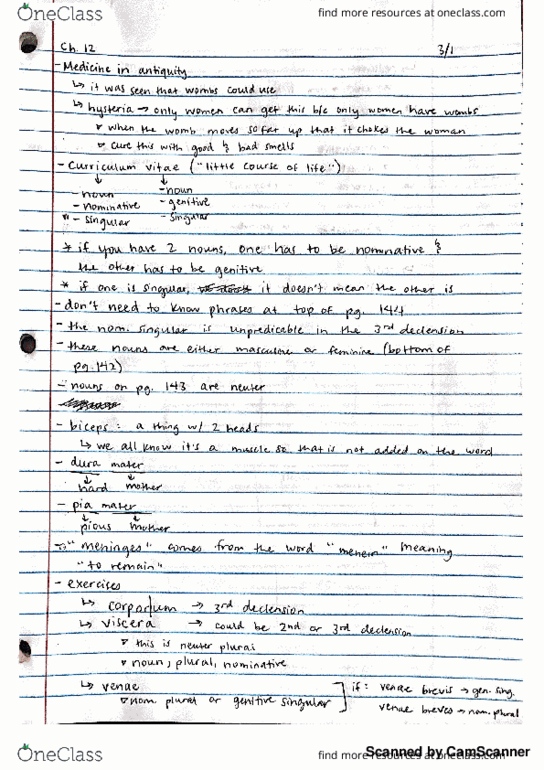 OneClass
find more resources at oneclass.com
Ch. 12
3/1
- Medicine in antiquity
↳ it was seen that wombs could use
↳ hysteria → only women can get this b/c only women have wombs
when the womb moves so far up that it chokes the woman
cure this with good & bad smells
- Curriculum vitae ("little course of life")
↓ ↓
- noun - noun
- nominative - genitive
- singular - singular
* if you have 2 nouns, one has to be nominative &
the other has to be genitive
* if one is singular, it doesn't mean the other is
- don't need to know phrases at top of pg. 144
- the nom. singular is unpredicable in the 3rd declension
- these nouns are either masculine or feminine (bottom of
pg. 142)
- nouns on pg. 143 are neuter
- biceps : a thing w/ 2 heads
↳ we all know it's a muscle so that is not added on the word
- dura mater
↓ ↓
hard mother
- pia mater
↓ ↓
pious mother
- "meninges" comes from the word "menein" meaning
"to remain"
- exercises
↳ corporum → 3rd declension
↳ viscera → could be 2nd or 3rd declension
this is neuter plural
noun, plural, nominative
↳ venae
nom. plural or genitive singular
if: venae brevis → gen. sing.
venae breves → nom. plural
OneClass
find more resources at oneclass.com
Scanned by CamScanner